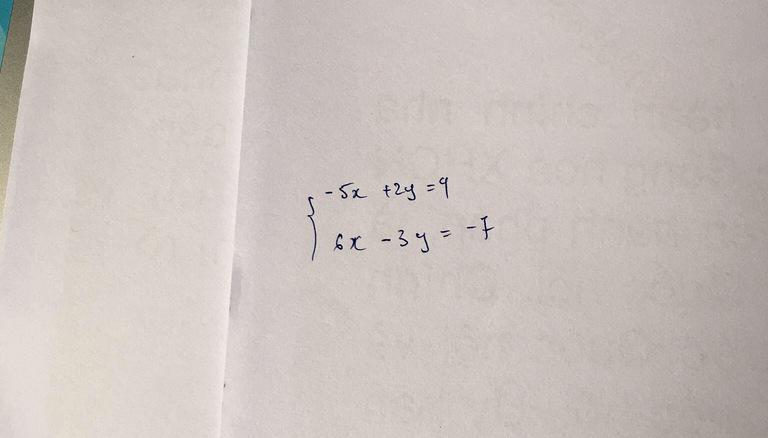 -5x +2y = 4
6x - 3y = -7